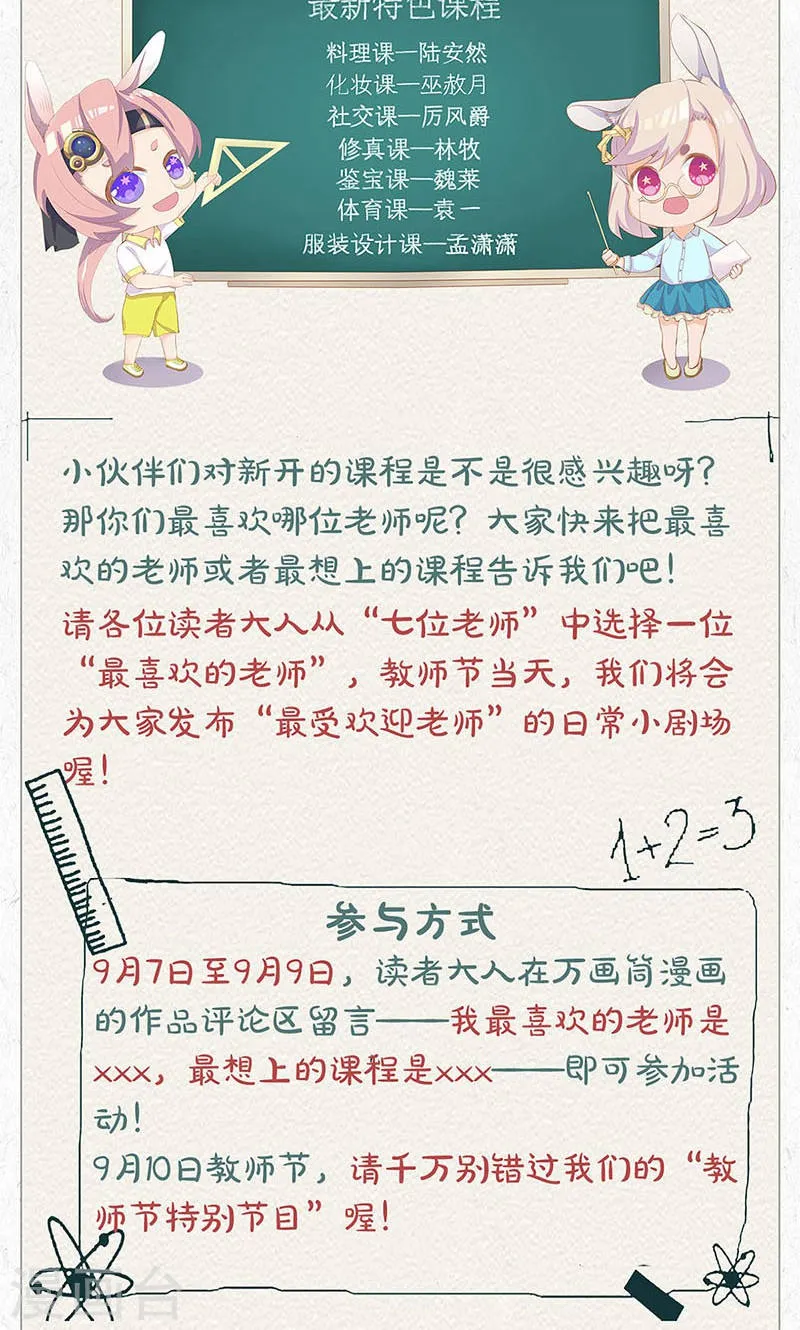 最新特色课程
料理课—陆安然
化妆课—巫赦月
社交课—厉风爵
修真课—林牧
鉴宝课—魏莱
体育课—袁一
服装设计课—孟潇潇
小伙伴们对新开的课程是不是很感兴趣呀?
那你们最喜欢哪位老师呢? 大家快来把最喜
欢的老师或者最想上的课程告诉我们吧!
请各位读者大人从“七位老师”中选择一位
“最喜欢的老师”, 教师节当天, 我们将会
为大家发布“最受欢迎老师”的日常小剧场
喔!
1+2=3
参与方式
9月7日至9月9日, 读者大人在万画筒漫画
的作品评论区留言——我最喜欢的老师是
xxx, 最想上的课程是xxx——即可参加活
动!
9月10日教师节, 请千万别错过我们的“教
师节特别节目”喔!
漫画台